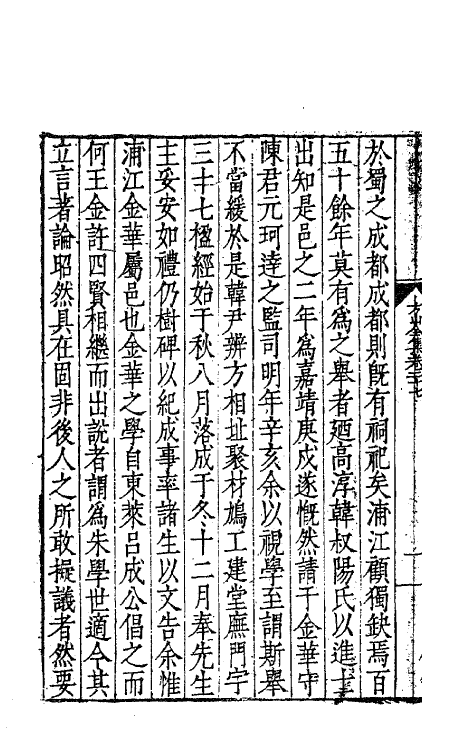 於蜀之成都成都則旣有祠祀矣浦江顧獨缺焉百
五十餘年莫有爲之舉者廼高淳韓叔陽氏以進士
出知是邑之二年爲嘉靖庚戌遂慨然請于金華守
陳君元珂逹之監司明年辛亥余以視學至謂斯舉
不當緩於是韓尹辨方相址聚材鳩工建堂廡門宇
三十七楹經始于秋八月落成于冬十二月奉先生
主妥安如禮仍樹碑以紀成事率諸生以文告余惟
浦江金華屬邑也金華之學自東萊吕成公倡之而
何王金許四賢相繼而出說者謂爲朱學世適今其
立言著論昭然具在固非後人之所敢擬議者然要